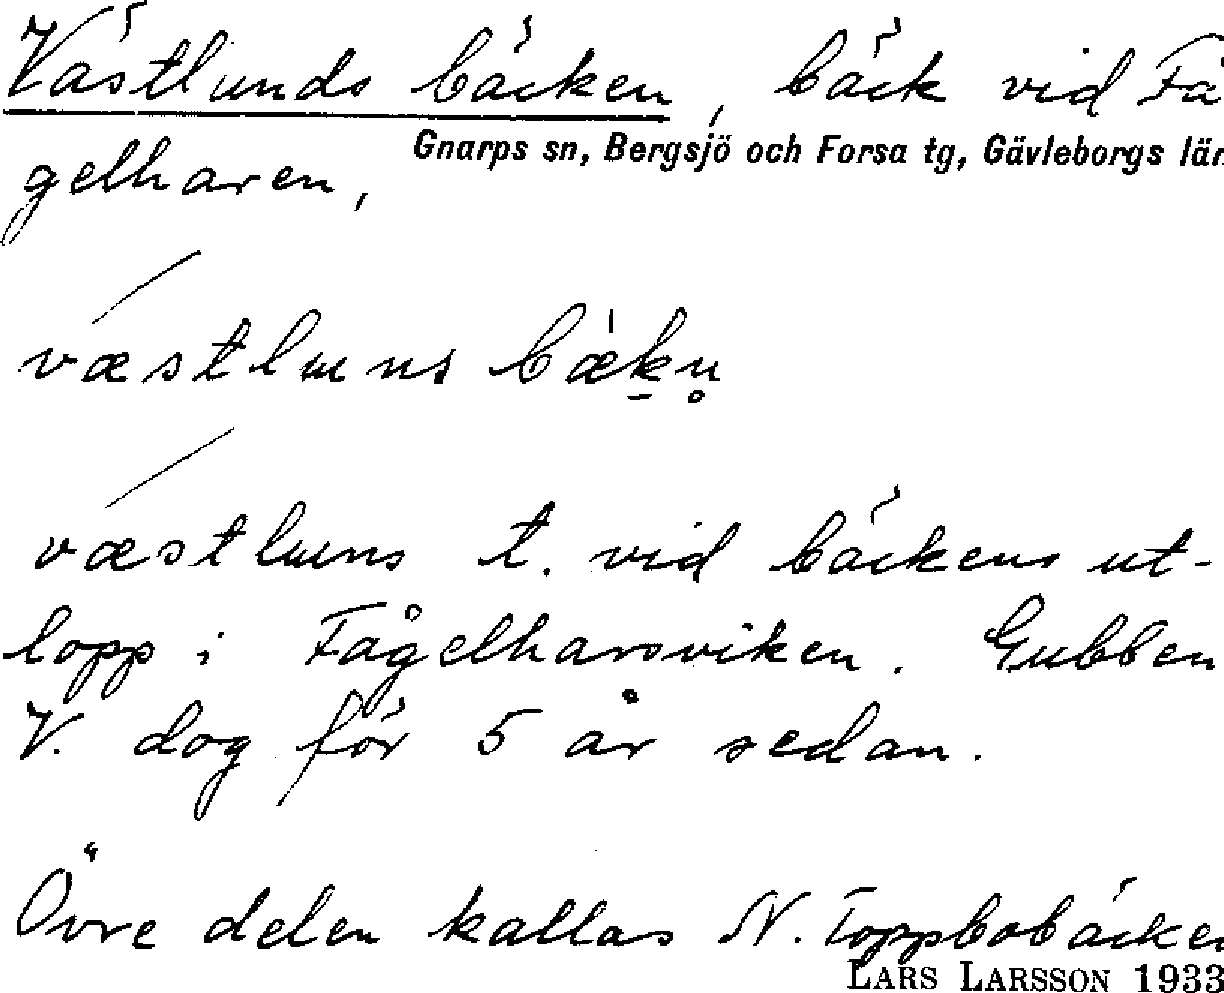 Västlunds bäcken, bäck vid Få
Gnarps sn, Bergsjö och Forsa tg, Gävleborgs län
gelharen,
væstluns bækn̥
væstluns t. vid bäckens ut-
lopp i Fågelharsviken. Gubben
V. dog för 5 år sedan.
Övre delen kallas N. Toppbobäcken
LARS LARSSON 1933